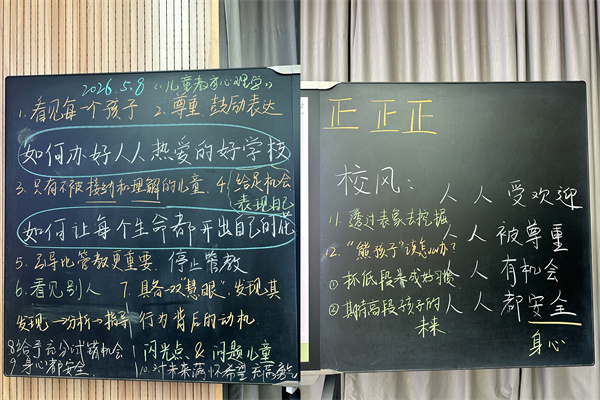 2026.5.8 《儿童教育心理学》
1.看见每一个孩子 2.尊重.鼓励表达
如何办好人人热爱的好学校
3.只有不被接纳和理解的儿童. 4.给足机会
表现自己
如何让每个生命都开出自己的花
5.引导比管教更重要. 停止管教
6.看见别人 7.具备一双慧眼:发现其
发现→分析→指导 行为背后的动机
8.给予充分试错机会 闪光点.& 问题儿童
9.身心都安全 10.对未来满怀希望 充满勇气
正 正 正
校风:
人 人 受欢迎
11.透过表象去挖掘
人 人 被尊重
12.“熊孩子”该怎么办?
人 人 有机会
①抓低段养成好习惯
人 人 都安全
②期待高段孩子的
未来
身心